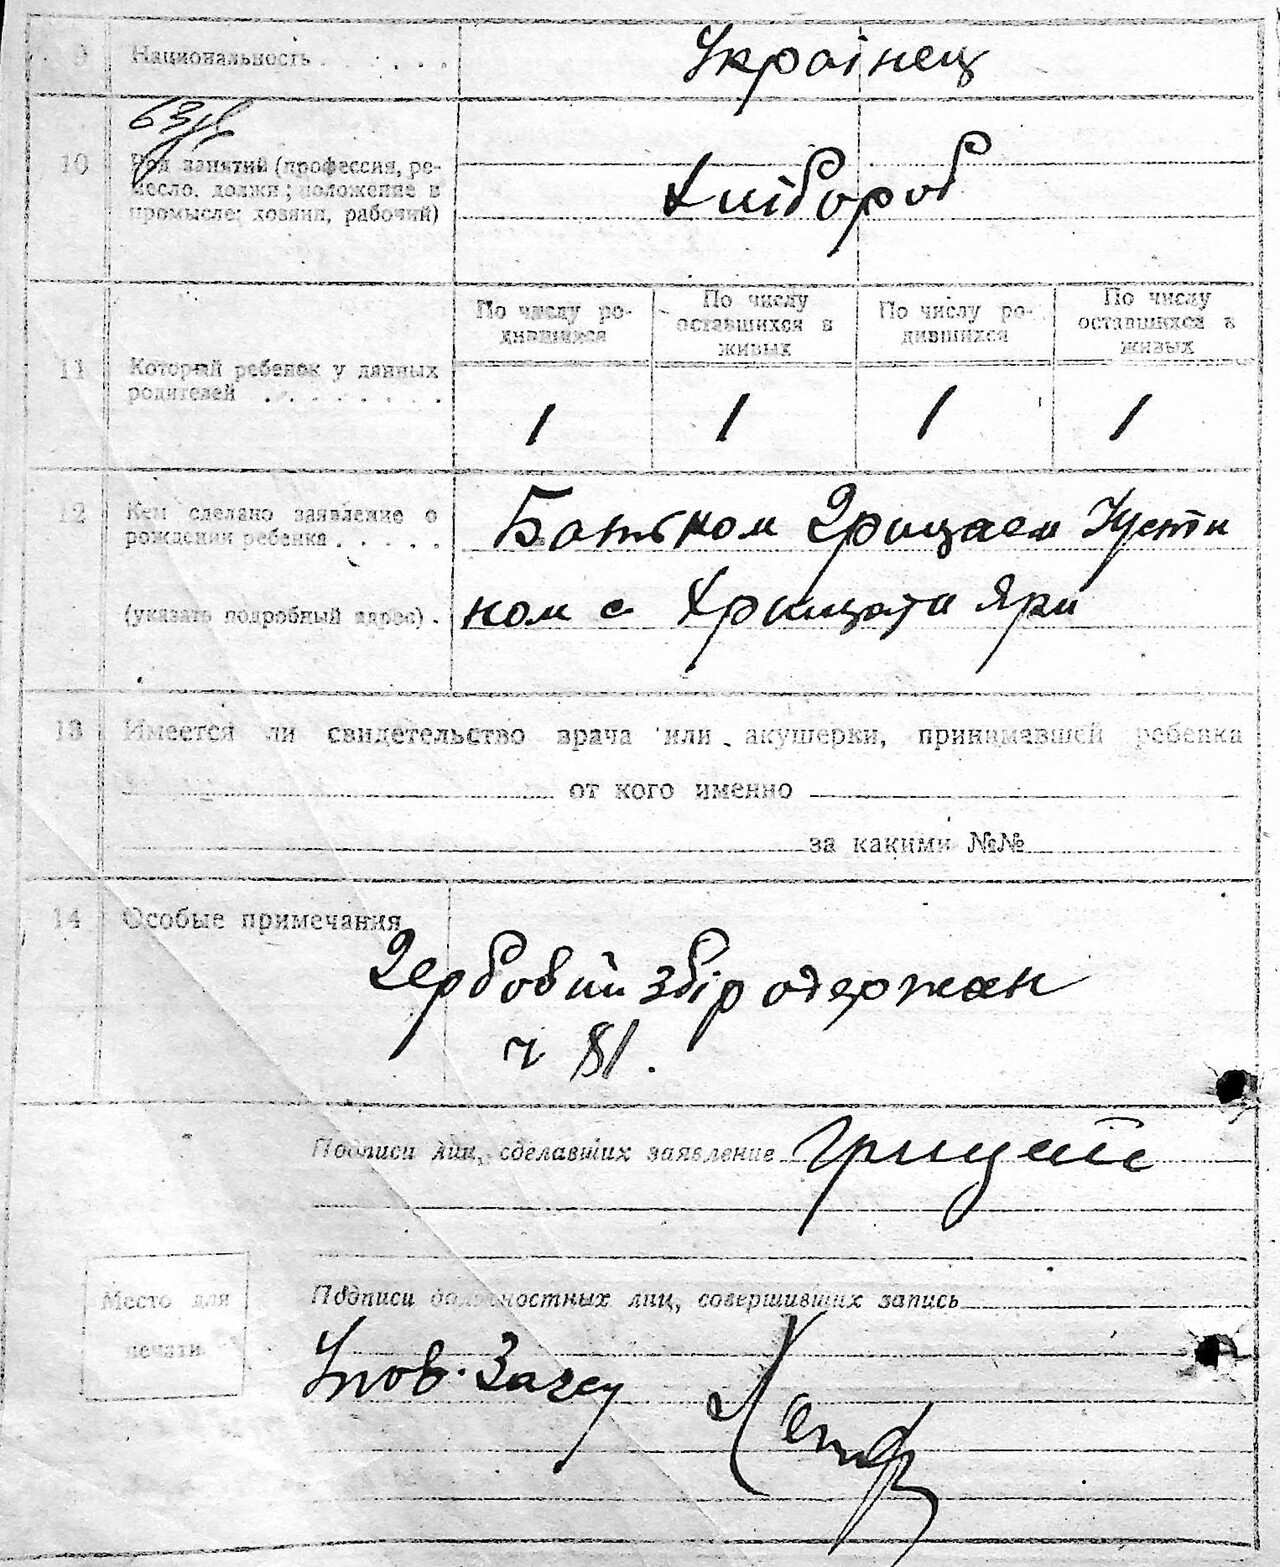 9 Национальность . . . . . . Украінец
10 Род занятий (профессия, ре-
месло, должн; положение в
промысле; хозяин, рабочий)
Хлібороб
11 Который ребенок у данных
родителей . . . . . . . .
По числу ро-
дившихся
По числу
оставшихся в
живых
По числу ро-
дившихся
По числу
оставшихся в
живых
1 1 1 1
12 Кем сделано заявление о
рождении ребенка . . . . .
(указать подробный адрес) .
Батьком Грицаем Усти
ком с Хрищати Яри
13 Имеется ли свидетельство врача или акушерки, принимавшей ребенка
от кого именно
за какими №№
14 Особые примечания
Гербовий збір одержан
ч 81.
Подписи лиц, сделавших заявление Грицай
Подписи должностных лиц, совершивших запись
Место для
печати
Упов. Загсу